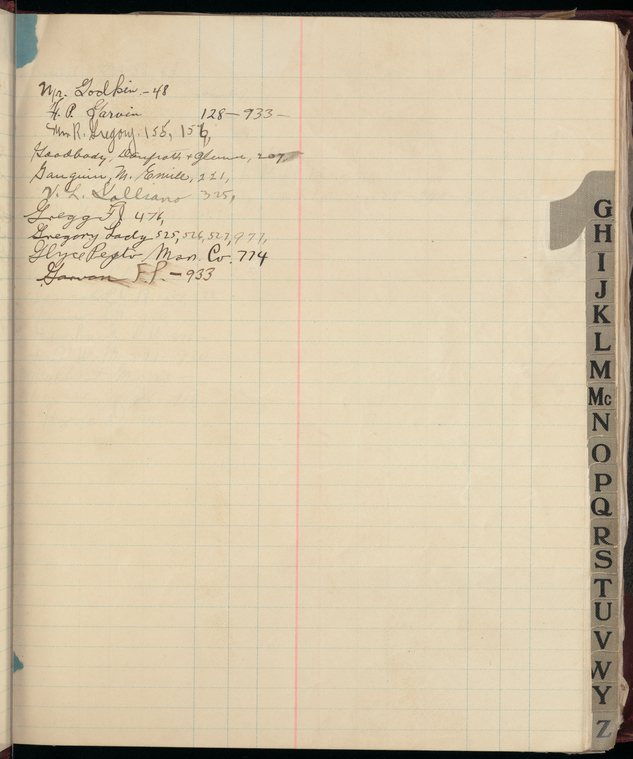 Mr. Godkin - 48
F. P. Garvin 128 - 933 -
Mrs R. Gregory. 155, 156,
Goodbody, & Glenn, 207
Gauguin, M. Emile, 221,
V. L. 325,
Gregg FJ 476,
Gregory Lady 525, 526, 527, 977,
Glyco Pepto Man. Co. 774
Garvan F.P. - 933
G
H
I
J
K
L
M
Mc
N
O
P
Q
R
S
T
U
V
W
Y
Z